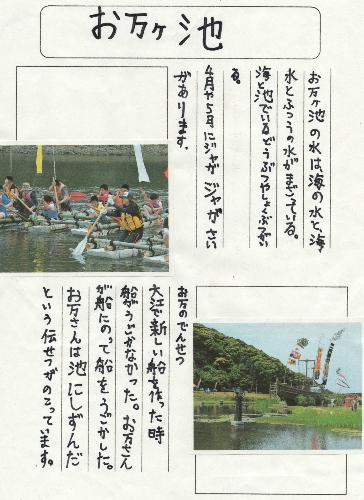 お万ヶ池
お万ヶ池の水は海の水と、海
水とふつうの水がまざっている。
海と池でいるどうぶつやしょくぶつがい
る。
4月や5月にジャガジャガさい
があります。
お万のでんせつ
大江で新しい船を作った時
船がうごかなかった。お万さん
が船にのって船をうごかした。
お万さんは池にしずんだ
という伝せつがのこっています。